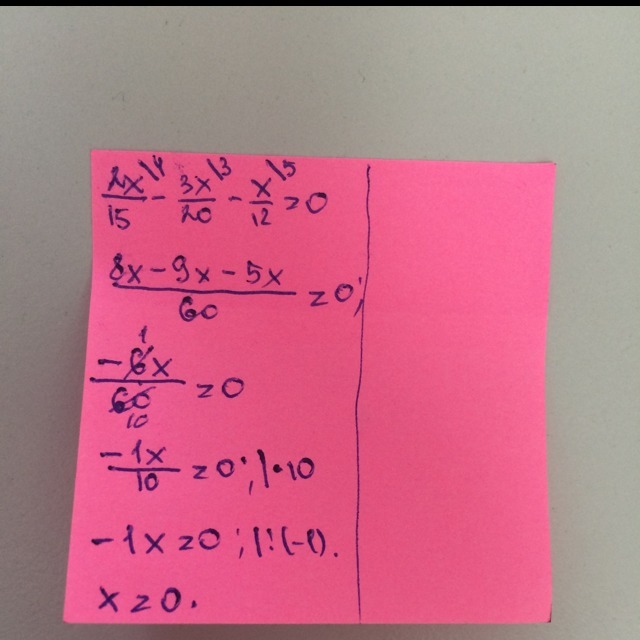 2x\4/15 - 3x\3/20 - x\5/12 = 0
8x - 9x - 5x/60 = 0;
1
-6x/60 = 0
10
-1x/10 = 0; |·10
-1x = 0; |:(-1).
x = 0.